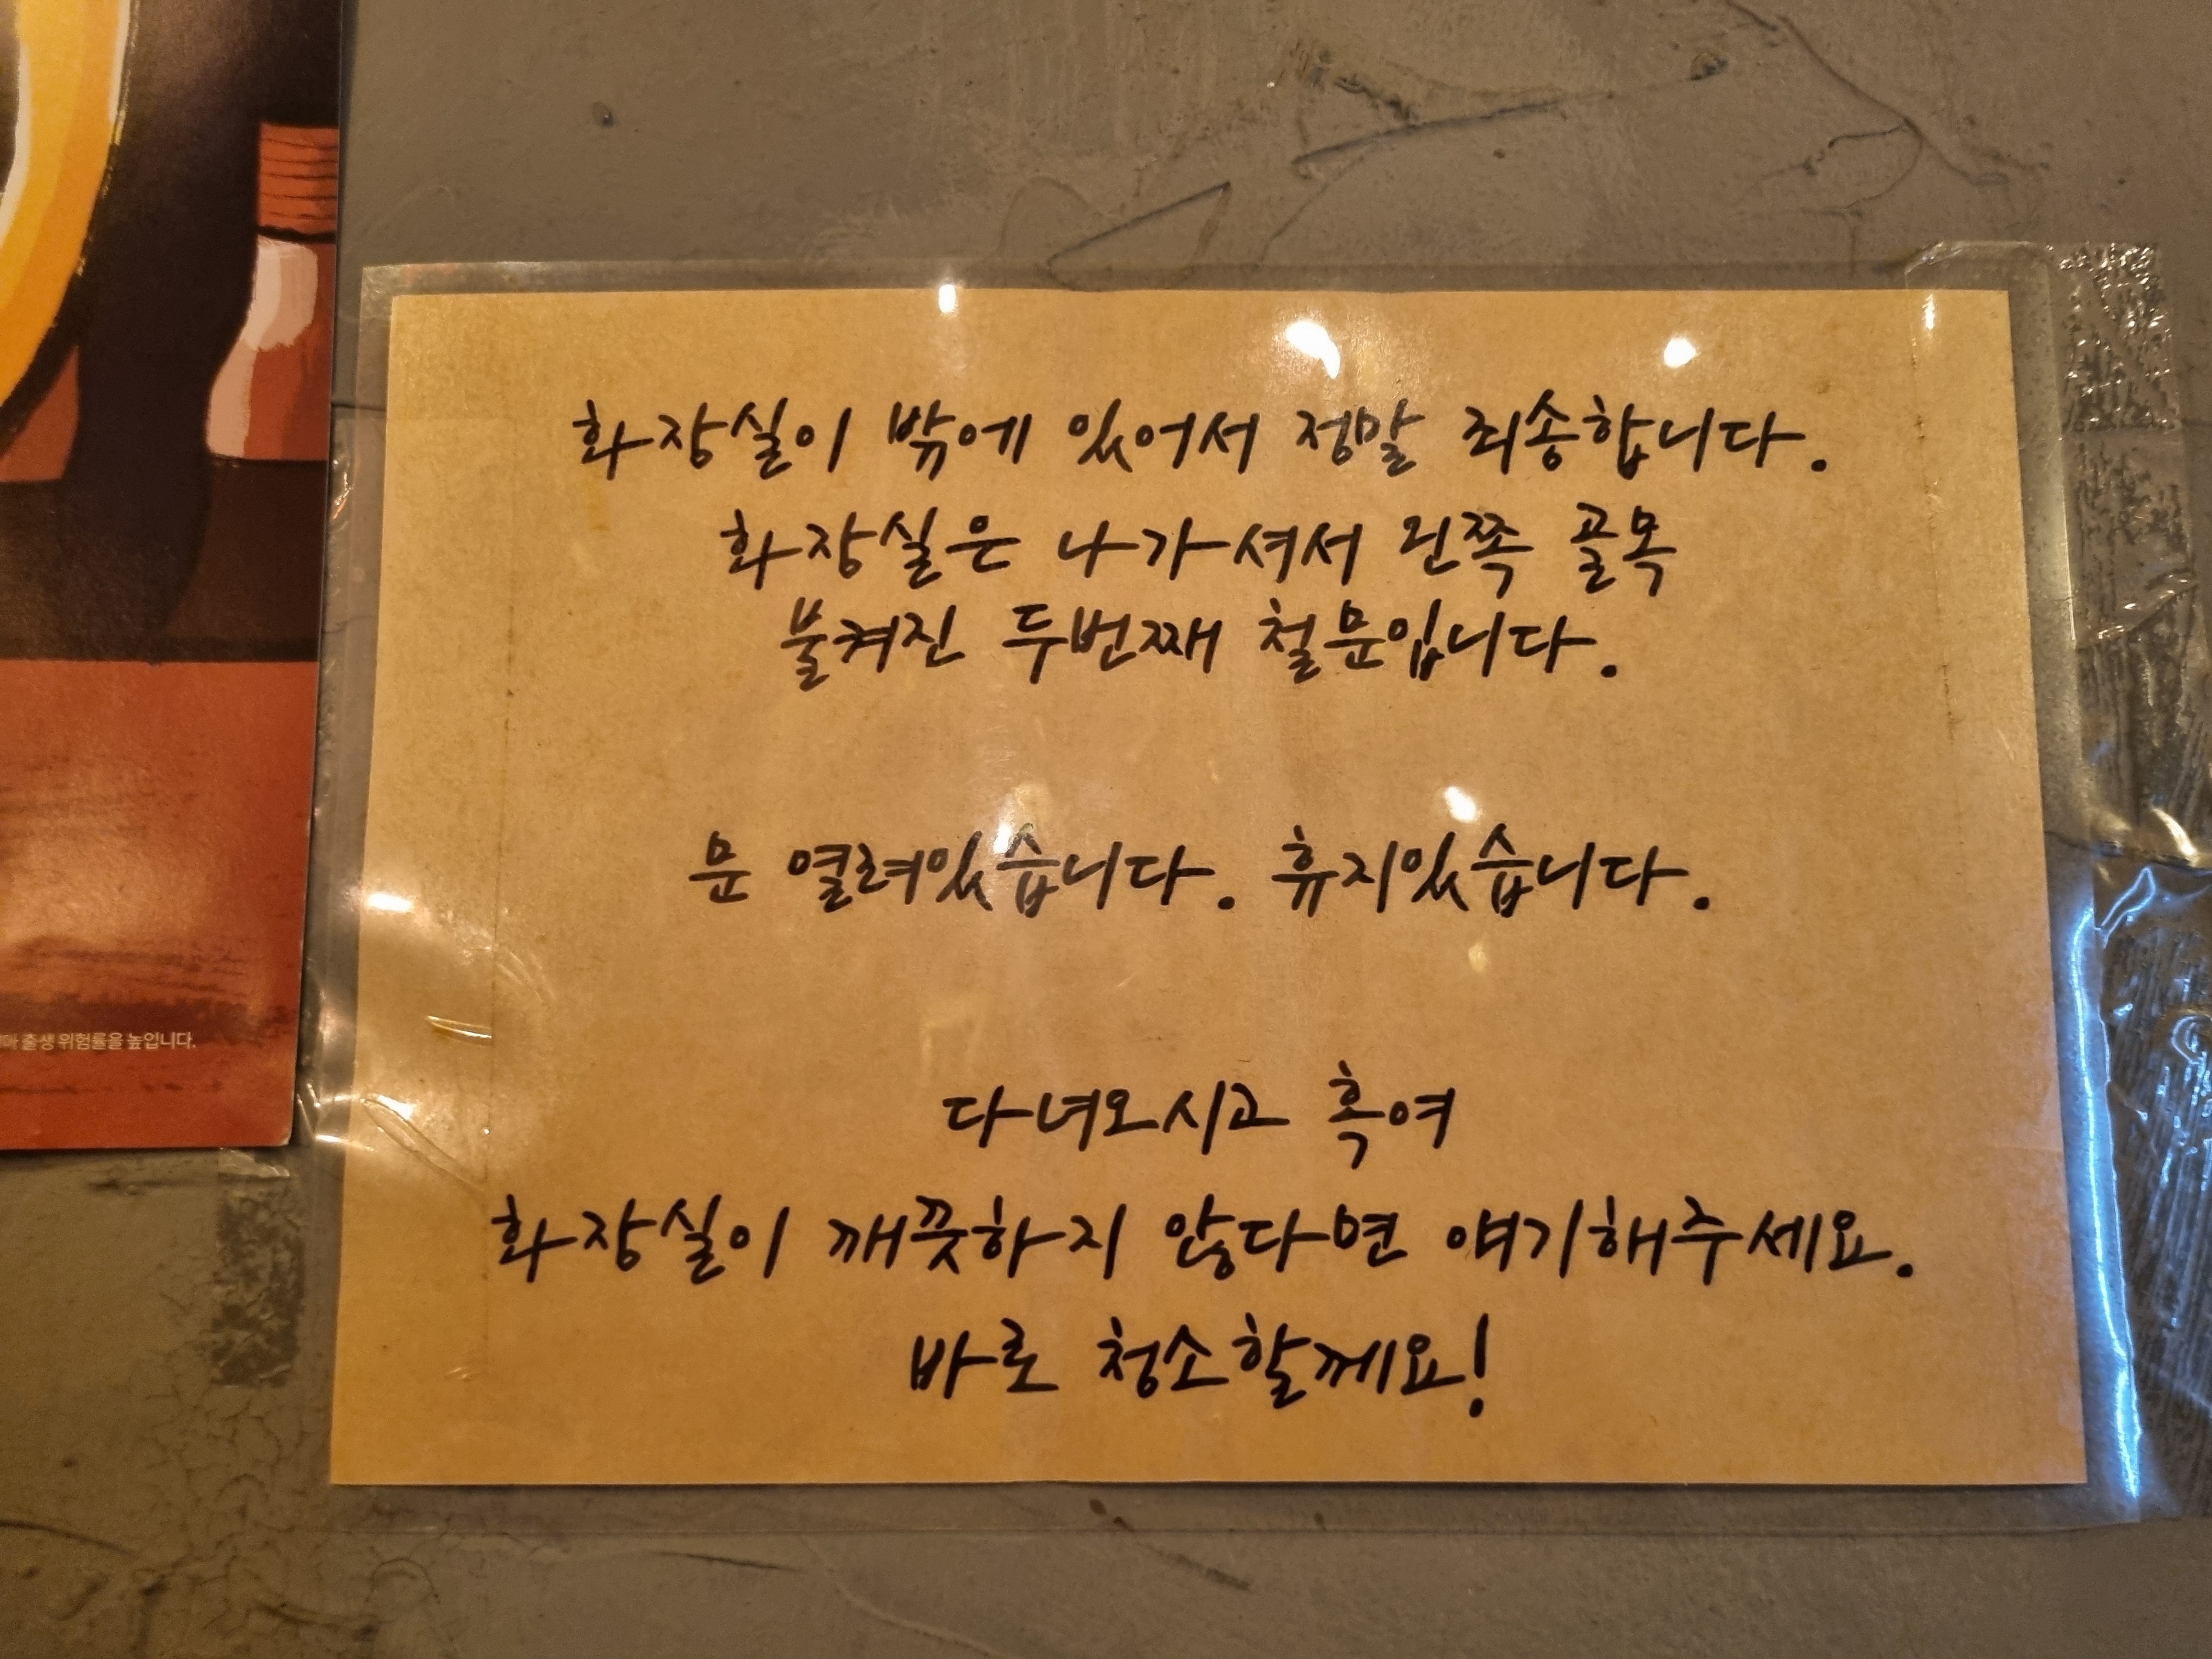 화장실이 밖에 있어서 정말 죄송합니다.
화장실은 나가셔서 왼쪽 골목
불켜진 두번째 철문입니다.
문 열려있습니다. 휴지있습니다.
다녀오시고 혹여
화장실이 깨끗하지 않다면 얘기해주세요.
바로 청소할께요!
출생 위험률을 높입니다.